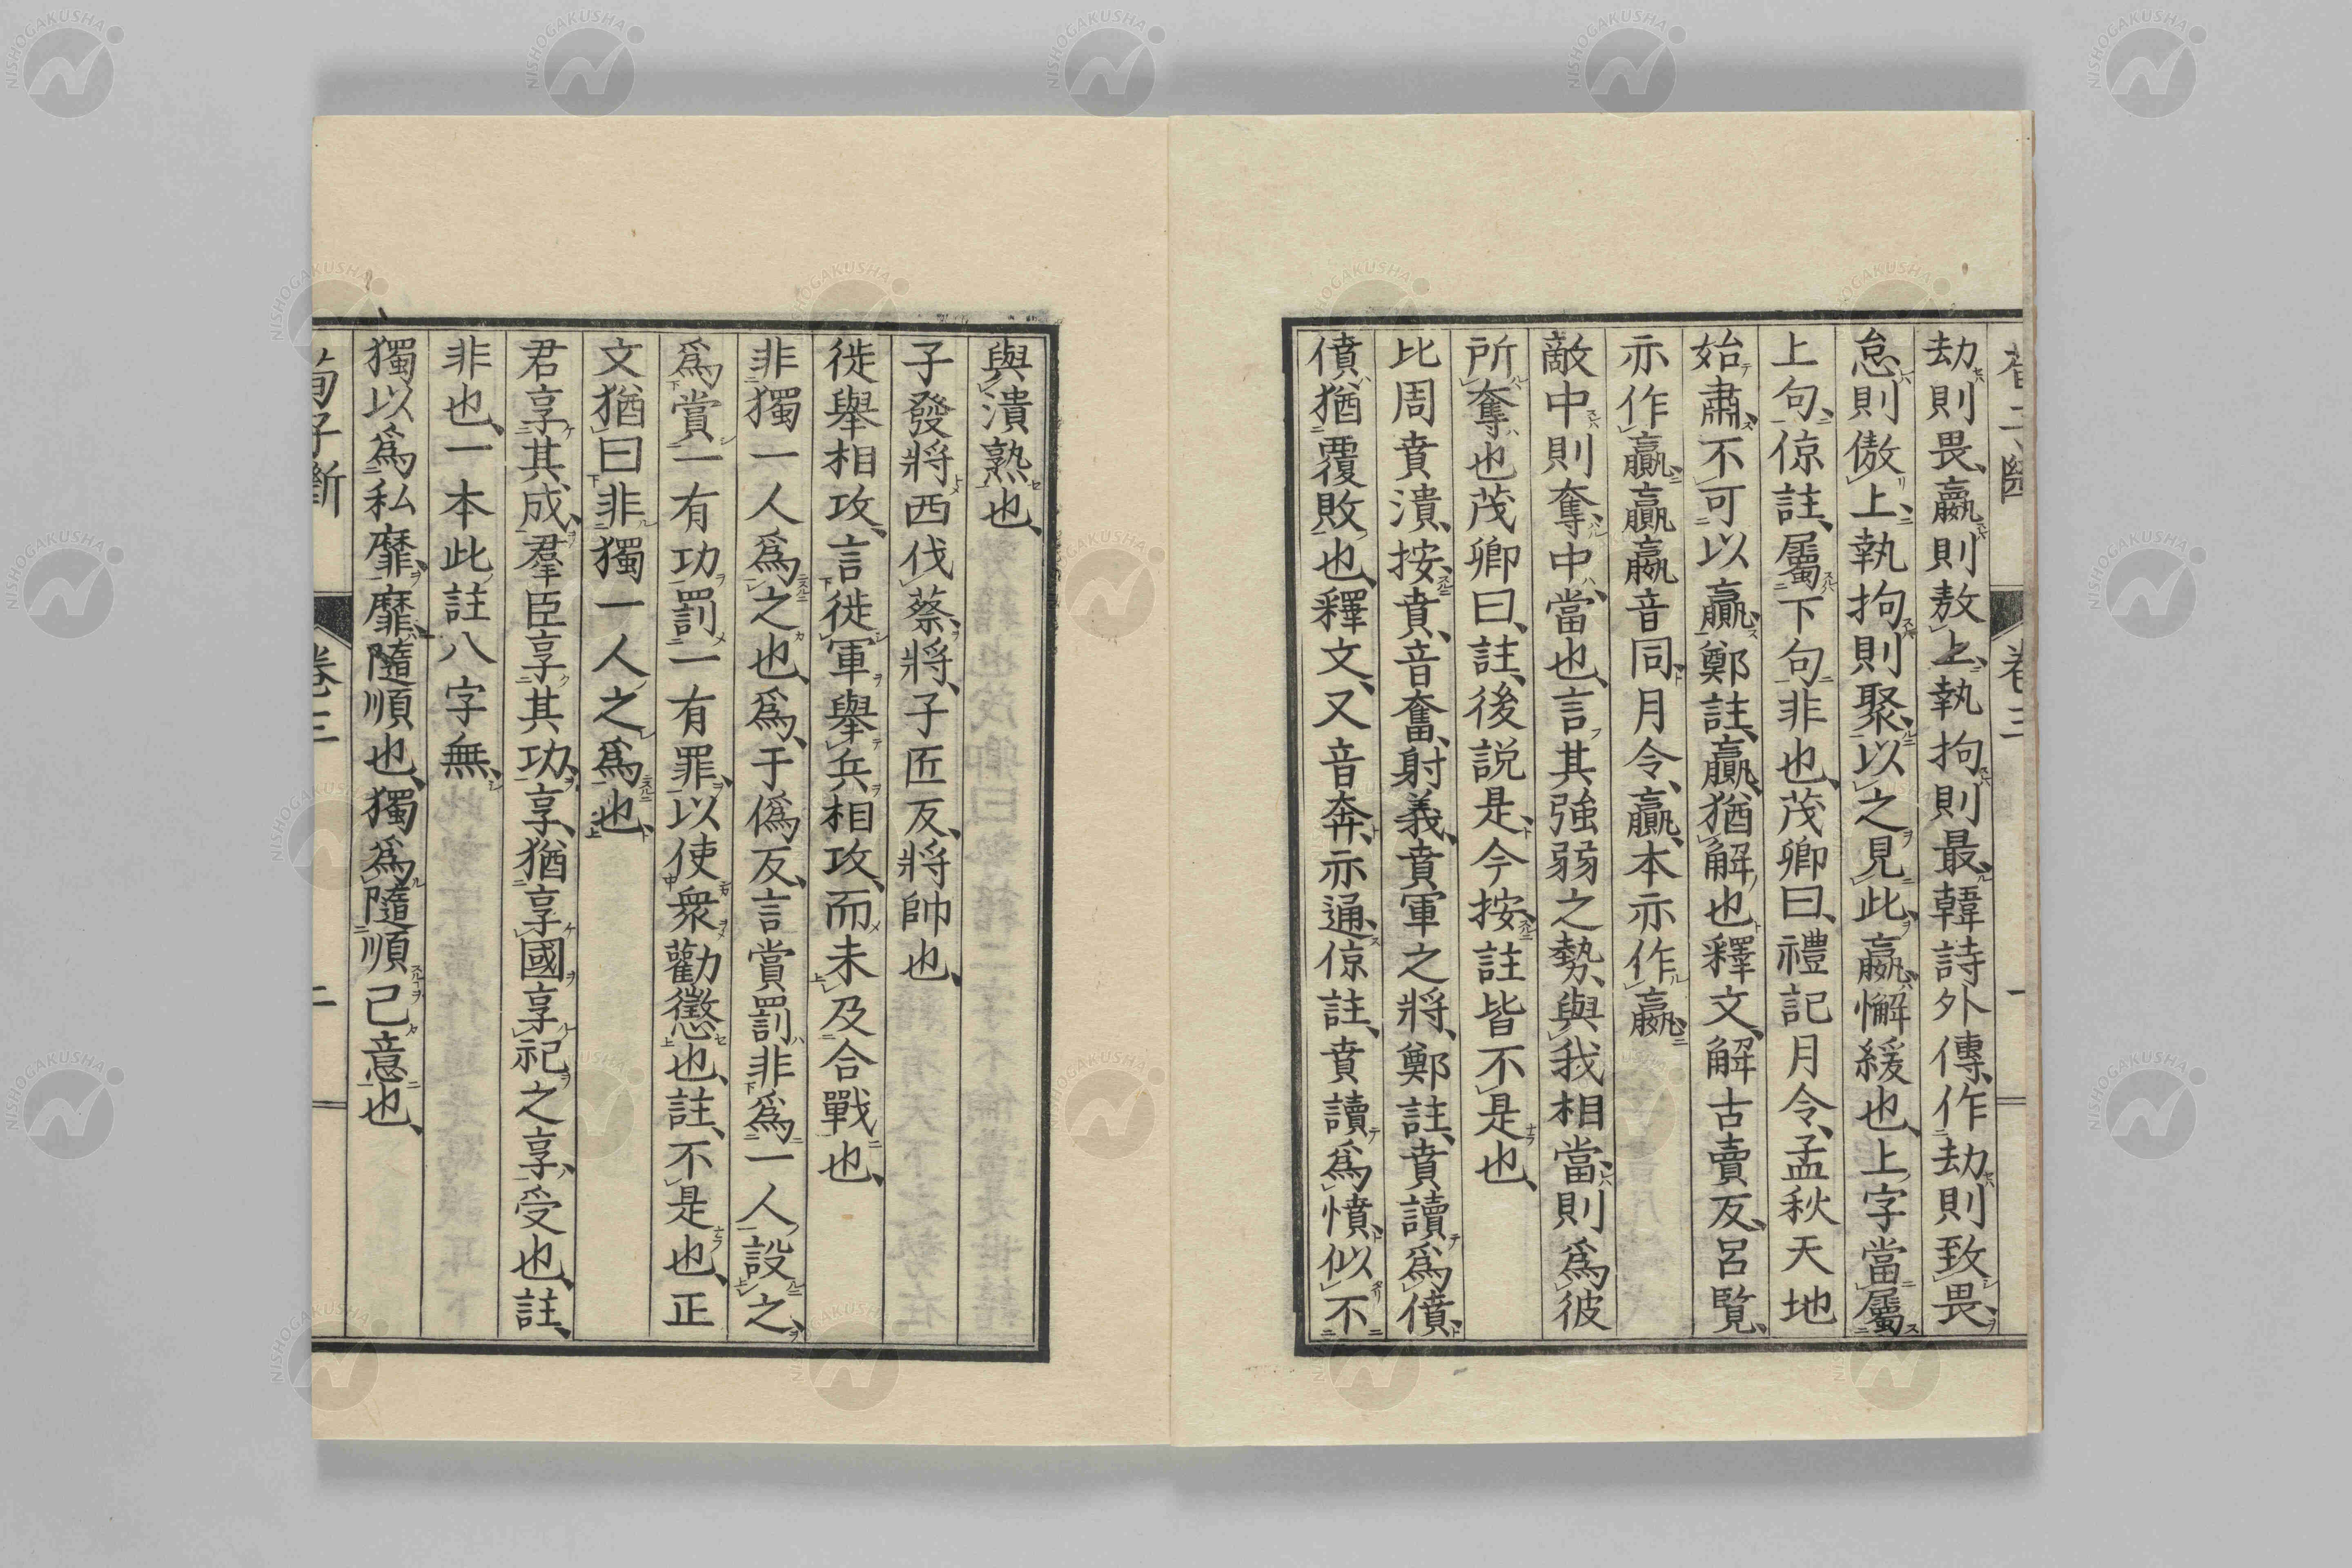 劫則畏、嬴則敖上、執拘則最、韓詩外傳、作劫則致畏、
怠則傲上、執拘則聚、以之見此、嬴懈緩也、上字當屬
上句、倞註、屬下句非也、茂卿曰、禮記月令、孟秋天地
始肅、不可以贏、鄭註、贏、猶解也、釋文、解古賣反、呂覽、
亦作贏、贏嬴音同、月令、贏、本亦作嬴、
敵中則奪、中、當也、言其強弱之勢、與我相當、則爲彼
所奪也茂卿曰、註、後説是、今按、註皆不是也、
比周賁潰、按、賁、音奮、射義、賁軍之將、鄭註、賁讀爲僨、
僨、猶覆敗也、釋文、又音奔、亦通、倞註、賁讀爲憤、似不
卷三
一
與潰熟也、
子發將西伐蔡、將、子匠反、將帥也、
徙舉相攻、言徙軍舉兵相攻、而未及合戰也、
非獨一人爲之也、爲、于僞反、言賞罰非爲一人設之、
爲賞一有功、罰一有罪、以使衆勸懲也、註、不是也、正
文猶曰非獨一人之爲也、
君享其成、羣臣享其功、享、猶享國享祀之享、受也、註、
非也、一本此註八字無、
獨以爲私靡、靡、隨順也、獨爲隨順己意也、
荀子斷
卷三
二
NISHOGAKUSHA